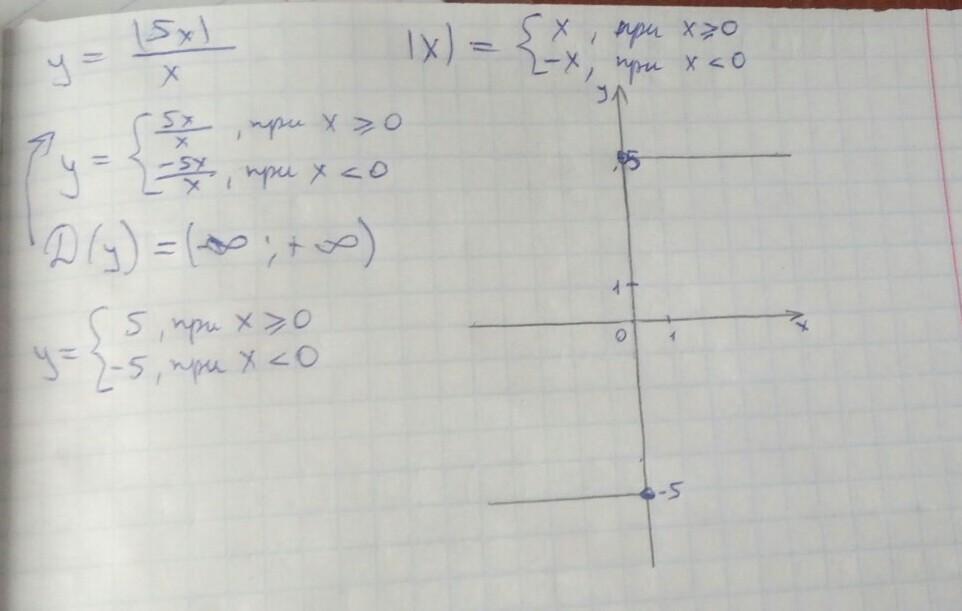 y = |5x| / x
|x| = { x, при x ⩾ 0
-x, при x < 0
y = { 5x/x, при x ⩾ 0
-5x/x, при x < 0
D(y) = (-∞; +∞)
y = { 5, при x ⩾ 0
-5, при x < 0
y
5
1
0 1 x
-5